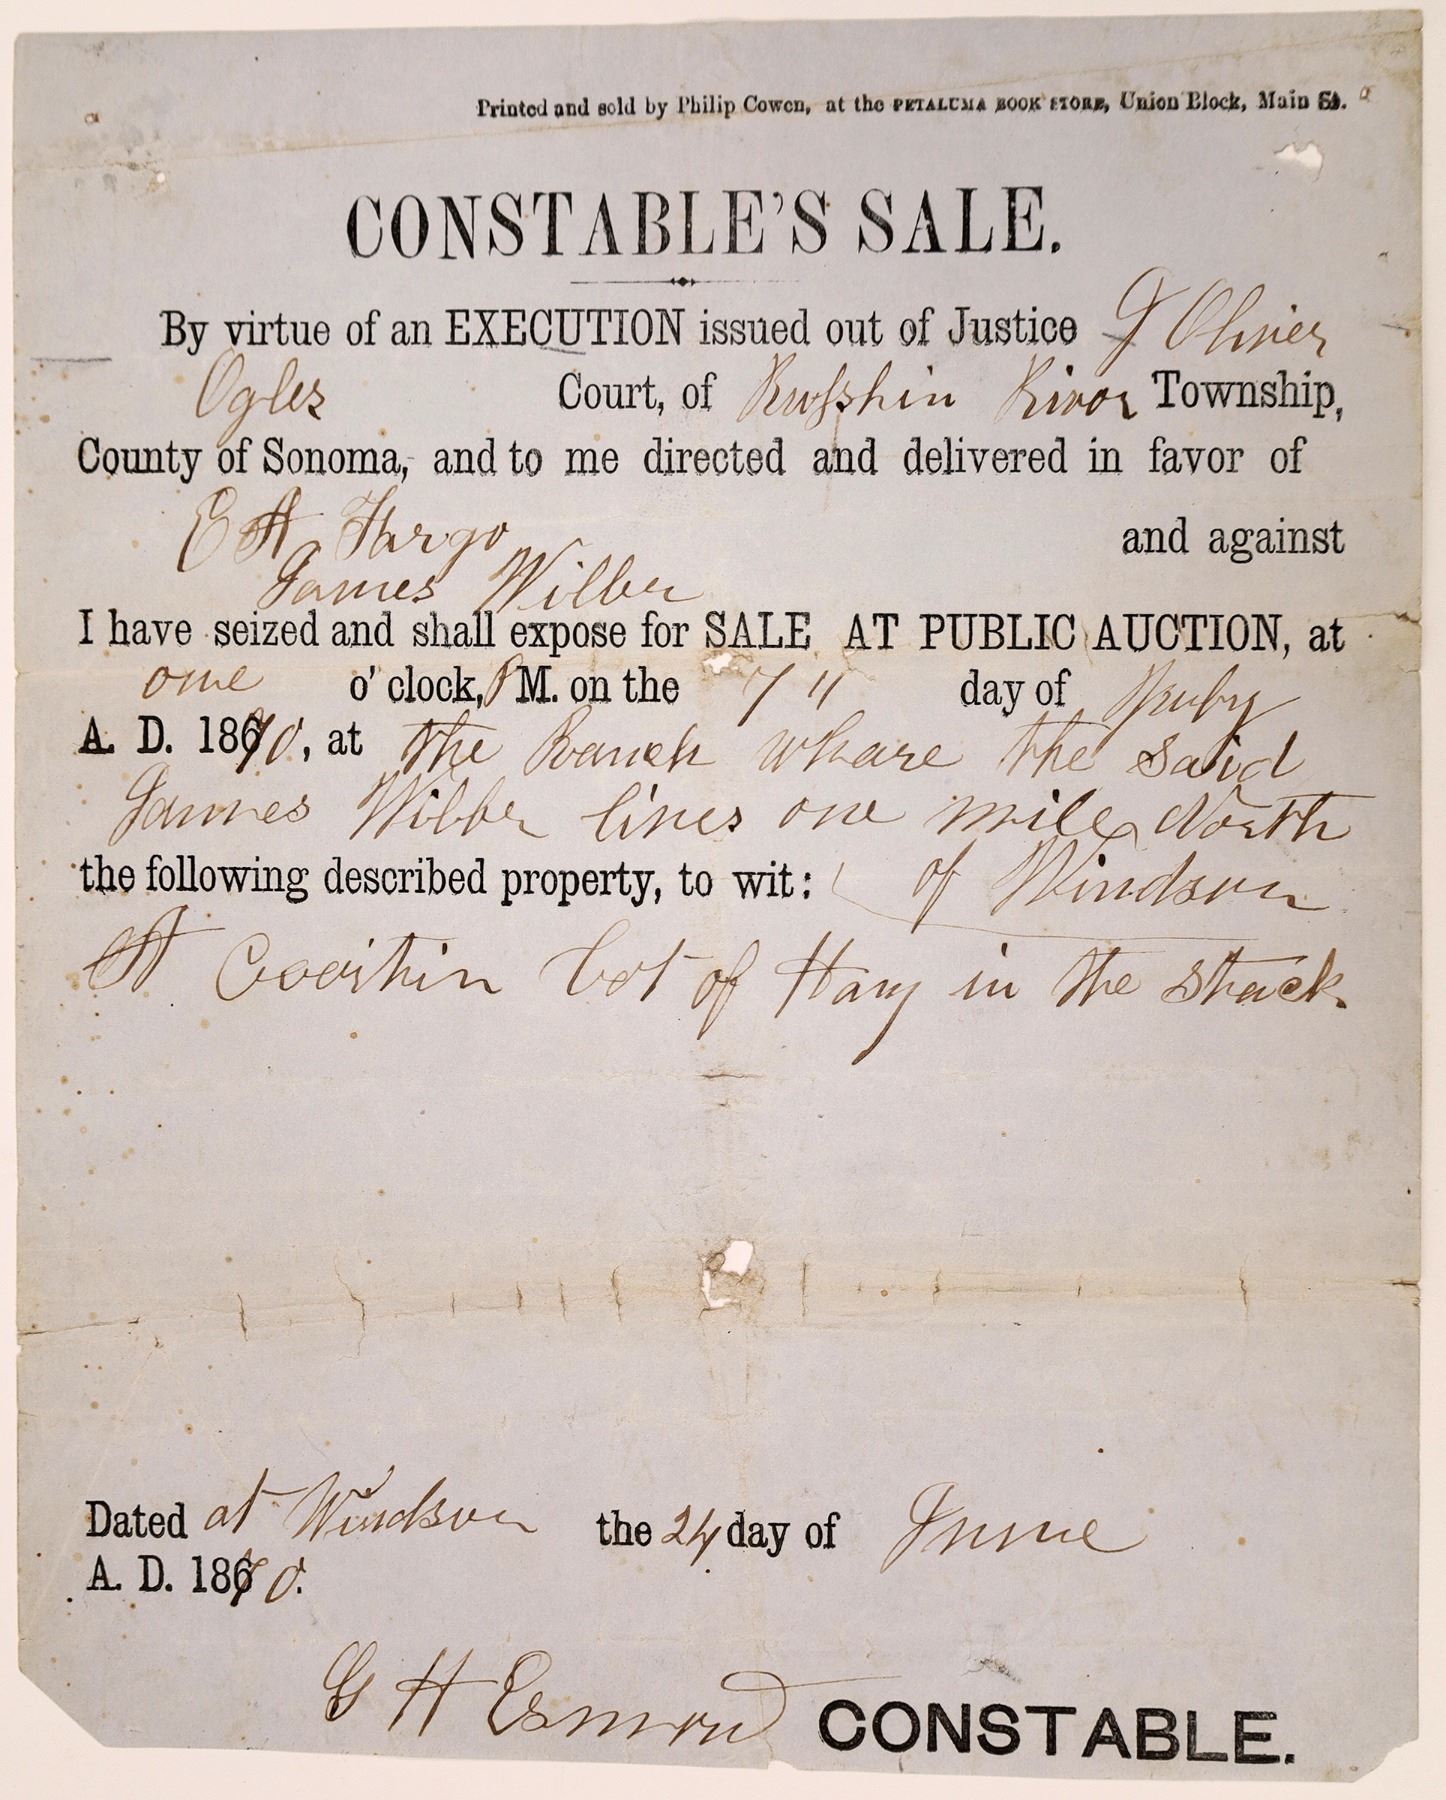 Printed and sold by Philip Cowen, at the PETALUMA BOOK STORE, Union Block, Main St.
CONSTABLE'S SALE.
By virtue of an EXECUTION issued out of Justice J Oliver
Ogles Court, of Russhin River Township,
County of Sonoma, and to me directed and delivered in favor of
E A Fargo and against
James Wilber
I have seized and shall expose for SALE AT PUBLIC AUCTION, at
one o'clock, P M. on the 7" day of
A. D. 1870, at the Ranch whare the said
James Wilber lives one mile North
the following described property, to wit: of Windsor
A Coortin Lot of Hay in the Stack
Dated at Windsor the 24 day of June
A. D. 1870.
G H Esmond CONSTABLE.